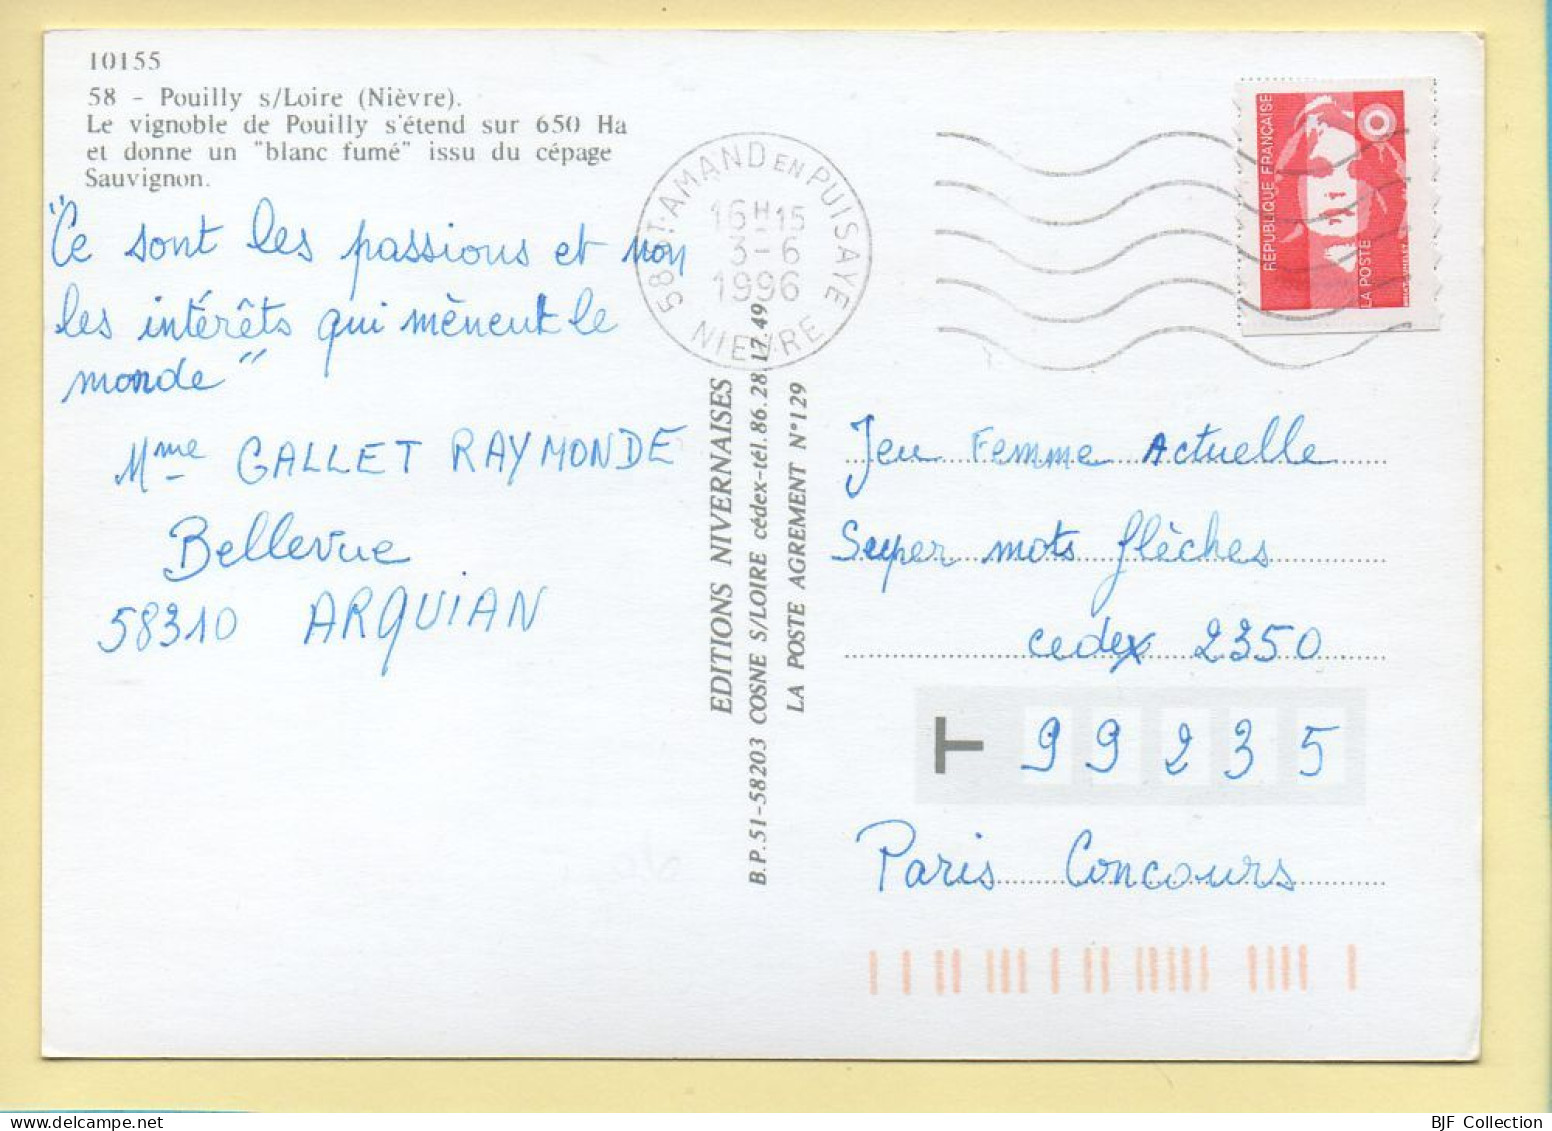 10155
58 - Pouilly s/Loire (Nièvre).
Le vignoble de Pouilly s'étend sur 650 Ha
et donne un "blanc fumé" issu du cépage
Sauvignon.
"Ce sont les passions et non
les intérêts qui mènent le
monde"
Mme GALLET RAYMONDE
Bellevue
58310 ARQUIAN
58 ST-AMAND EN PUISAYE
16H15
3-6
1996
NIEVRE
EDITIONS NIVERNAISES
B.P. 51-58203 COSNE S/LOIRE cédex-tél. 86.28.17.49
LA POSTE AGREMENT N°129
REPUBLIQUE FRANÇAISE
LA POSTE
Jeu Femme Actuelle
Super mots flèches
cedex 2350
T 99235
Paris Concours
BJF Collection